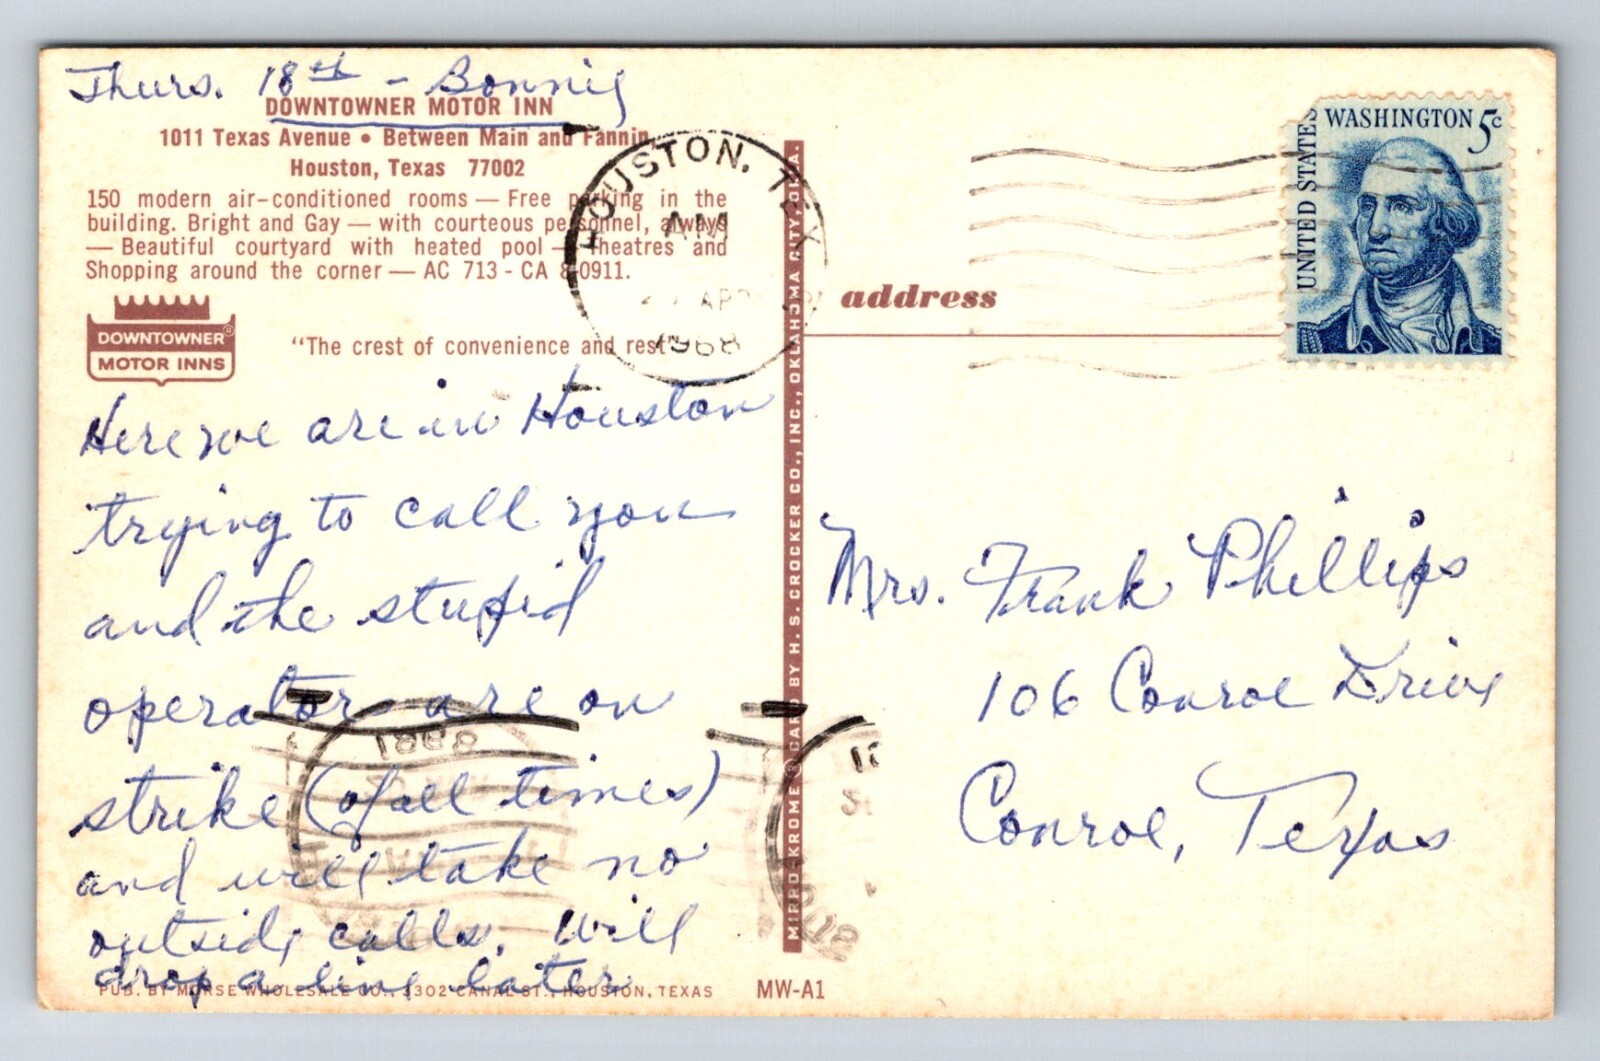 Thurs. 18th - Bonnie
DOWNTOWNER MOTOR INN
1011 Texas Avenue • Between Main and Fannin
Houston, Texas 77002
150 modern air-conditioned rooms — Free parking in the
building. Bright and Gay — with courteous personnel, always
— Beautiful courtyard with heated pool — Theatres and
Shopping around the corner — AC 713 - CA 8-0911.
DOWNTOWNER®
MOTOR INNS
"The crest of convenience and rest"
HOUSTON, TEX
AM
APR
1968
Here we are in Houston
trying to call you
and the stupid
operators are on
strike (of all times)
and will take no
outside calls. Will
drop a line later
PUB. BY MORSE WHOLESALE CO., 3302 CANAL ST., HOUSTON, TEXAS
MW-A1
MIRRO-KROME ® CARD BY H. S. CROCKER CO., INC., OKLAHOMA CITY, OKLA.
address
UNITED STATES
WASHINGTON 5c
Mrs. Frank Phillips
106 Conroe Drive
Conroe, Texas